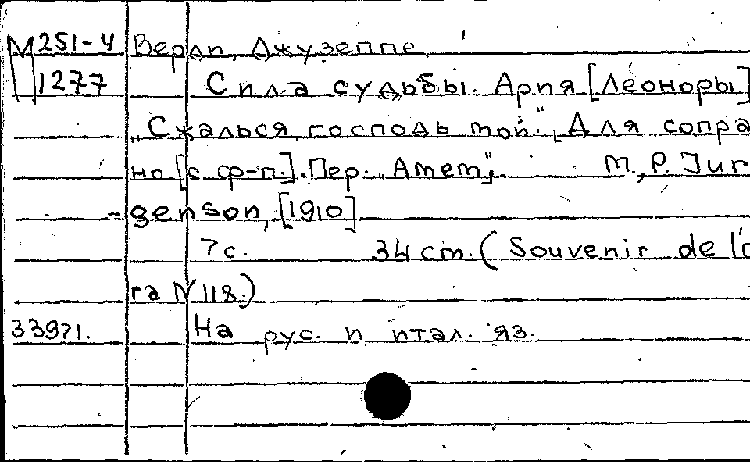 М 251-4 Верди, Джузеппе
1277 Сила судьбы. Ария [Леоноры]
„Сжалься, господь мой". Для сопра
но [с ф-п.]. Пер. „Amem". М., P. Jur
genson, [1910]
7 с. 34 cm. (Souvenir de l'o
ra N 118.)
33971. На рус. и итал. яз.